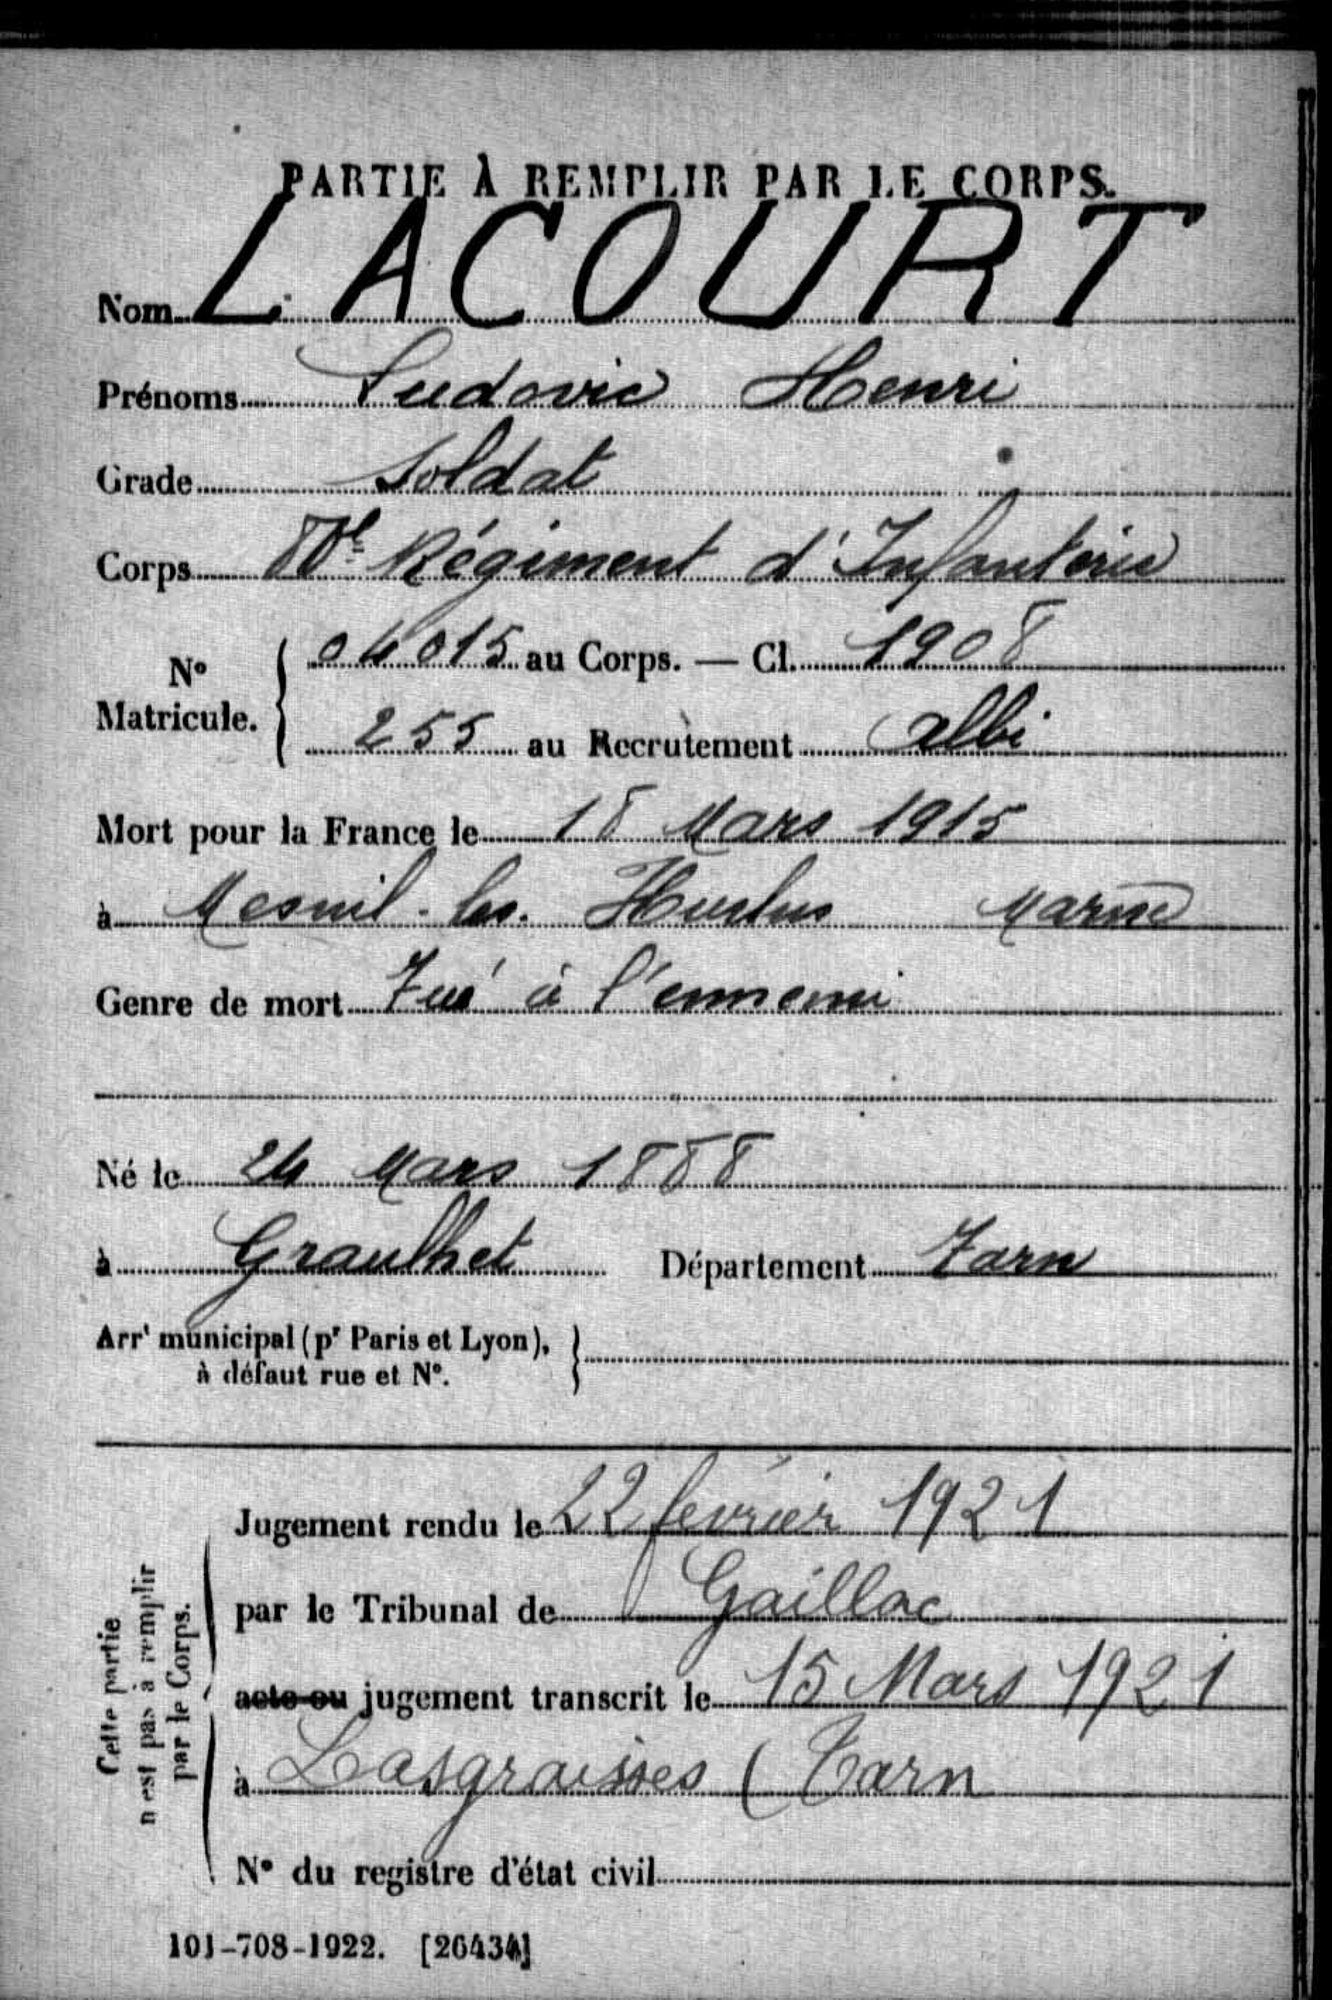 PARTIE À REMPLIR PAR LE CORPS.
Nom LACOURT
Prénoms Ludovic Henri
Grade Soldat
Corps 80e Régiment d'Infanterie
No Matricule. { 04015 au Corps. — Cl. 1908
255 au Recrutement Albi
Mort pour la France le 18 Mars 1915
à Mesnil-les-Hurlus Marne
Genre de mort Tué à l'ennemi
Né le 24 Mars 1888
à Graulhet Département Tarn
Arrt municipal (pr Paris et Lyon), }
à défaut rue et No.
Cette partie
n'est pas à remplir
par le Corps.
Jugement rendu le 22 février 1921
par le Tribunal de Gaillac
acte ou jugement transcrit le 15 Mars 1921
à Lasgraisses (Tarn
No du registre d'état civil
101-708-1922. [26434]